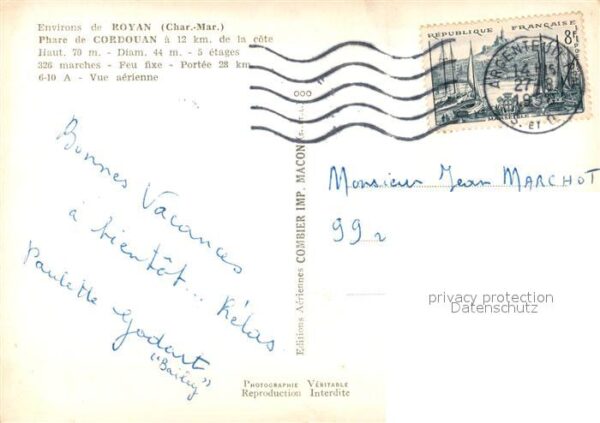 Environs de ROYAN (Char.-Mar.)
Phare de CORDOUAN à 12 km. de la côte
Haut. 70 m. - Diam. 44 m. - 5 étages
326 marches - Feu fixe - Portée 28 km
6-10 A - Vue aérienne
Bonnes Vacances
à bientôt... Hélas
Paulette Godart
"Bailey"
Editions Aériennes COMBIER IMP. MACON
PHOTOGRAPHIE VÉRITABLE
Reproduction Interdite
REPUBLIQUE FRANÇAISE
8F
POSTES
ARGENTEUIL
S. ET O.
Monsieur Jean MARCHOT
99
privacy protection
Datenschutz